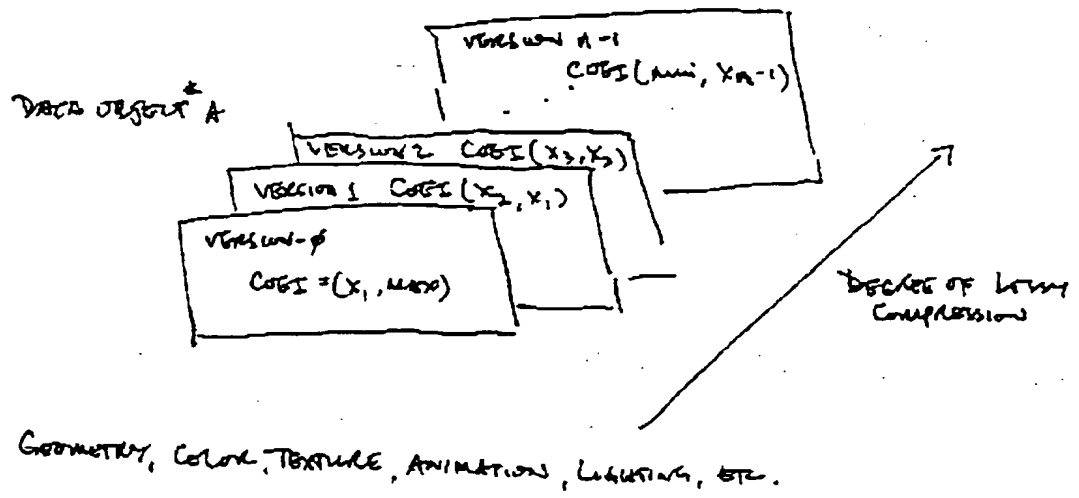 VERSION n-1
COGI(min, Xn-1)
DATA OBJECT* A
VERSION 2 COGI(X3, X2)
VERSION 1 COGI(X2, X1)
VERSION-φ
COGI =(X1, MAX)
DEGREE OF LOSSY
COMPRESSION
GEOMETRY, COLOR, TEXTURE, ANIMATION, LIGHTING, ETC.